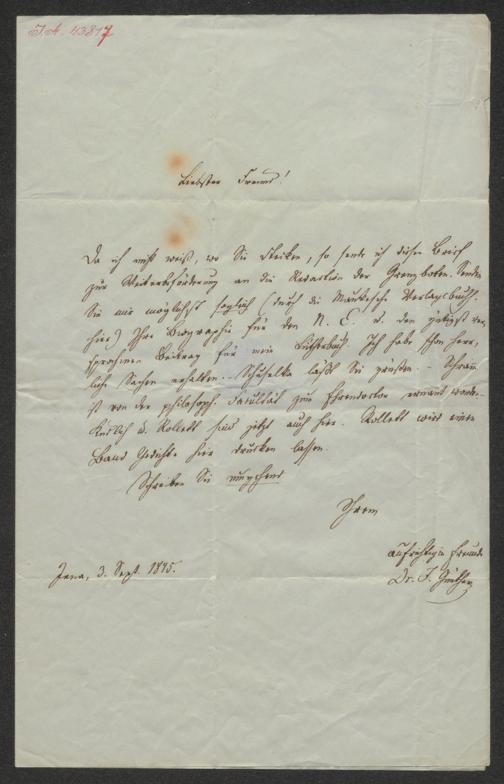 I.N. 43817
Liebster Freund!
Da ich nicht weiß, wo Sie stecken, so sende ich diesen Brief
zur Weiterbeförderung an die Redaction der Grenzboten. Senden
Sie mir möglichst sogleich (durch die Mauke'sche Verlagsbuchh.
hier) Ihre Biographie für den N. E. u. den gütigst ver-
sprochenen Beitrag für mein Lutherbuch. Ich habe schon herr-
liche Sachen erhalten. Schuselka läßt Sie grüßen.
ist von der philosoph. Facultät zum Ehrendoctor ernannt worden.
u. Rollett sind jetzt auch hier. Rollett wird einen
Band Gedichte hier drucken lassen.
Schreiben Sie umgehend
Ihrem
aufrichtigen Freunde
Dr. J. Günther
Jena, 3. Sept. 1845.